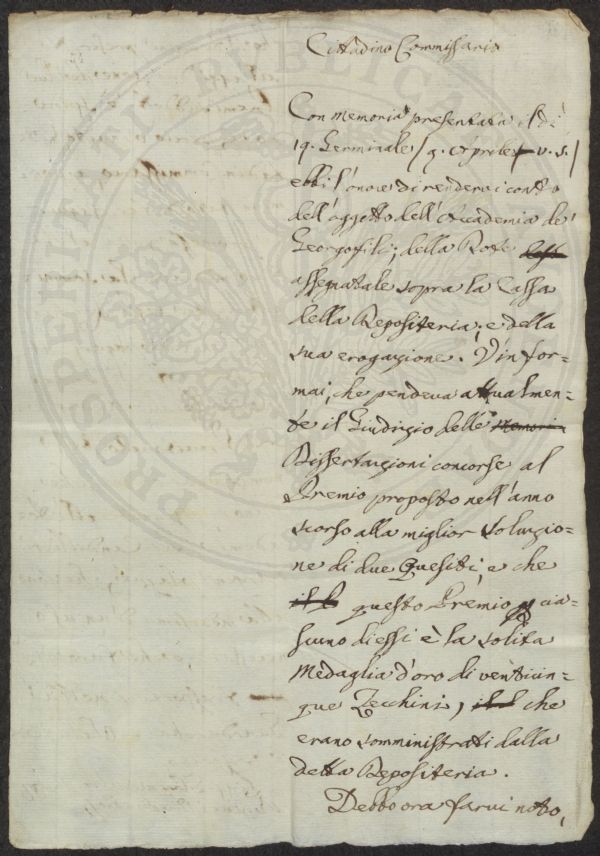 Cittadino Commissario
Con memoria presentata il dì
19. Germinale / 9. Aprile v. s. /
ebbi l'onore di rendervi conto
dell'oggetto dell'Accademia de'
Georgofili; della Dote
assegnatale sopra la Cassa
della Depositeria; e della
sua erogazione. V'infor-
mai, che pendeva attualmen-
te il Giudizio delle memorie
Dissertazioni concorse al
Premio proposto nell'anno
scorso alla miglior soluzio-
ne di due Quesiti; e che
questo Premio p cia-
scuno di essi è la solita
Medaglia d'oro di venticin-
que Zecchini, che
erano somministrati dalla
detta Depositeria.
Debbo ora farvi noto,
PROSPERITATI PUBLICAE